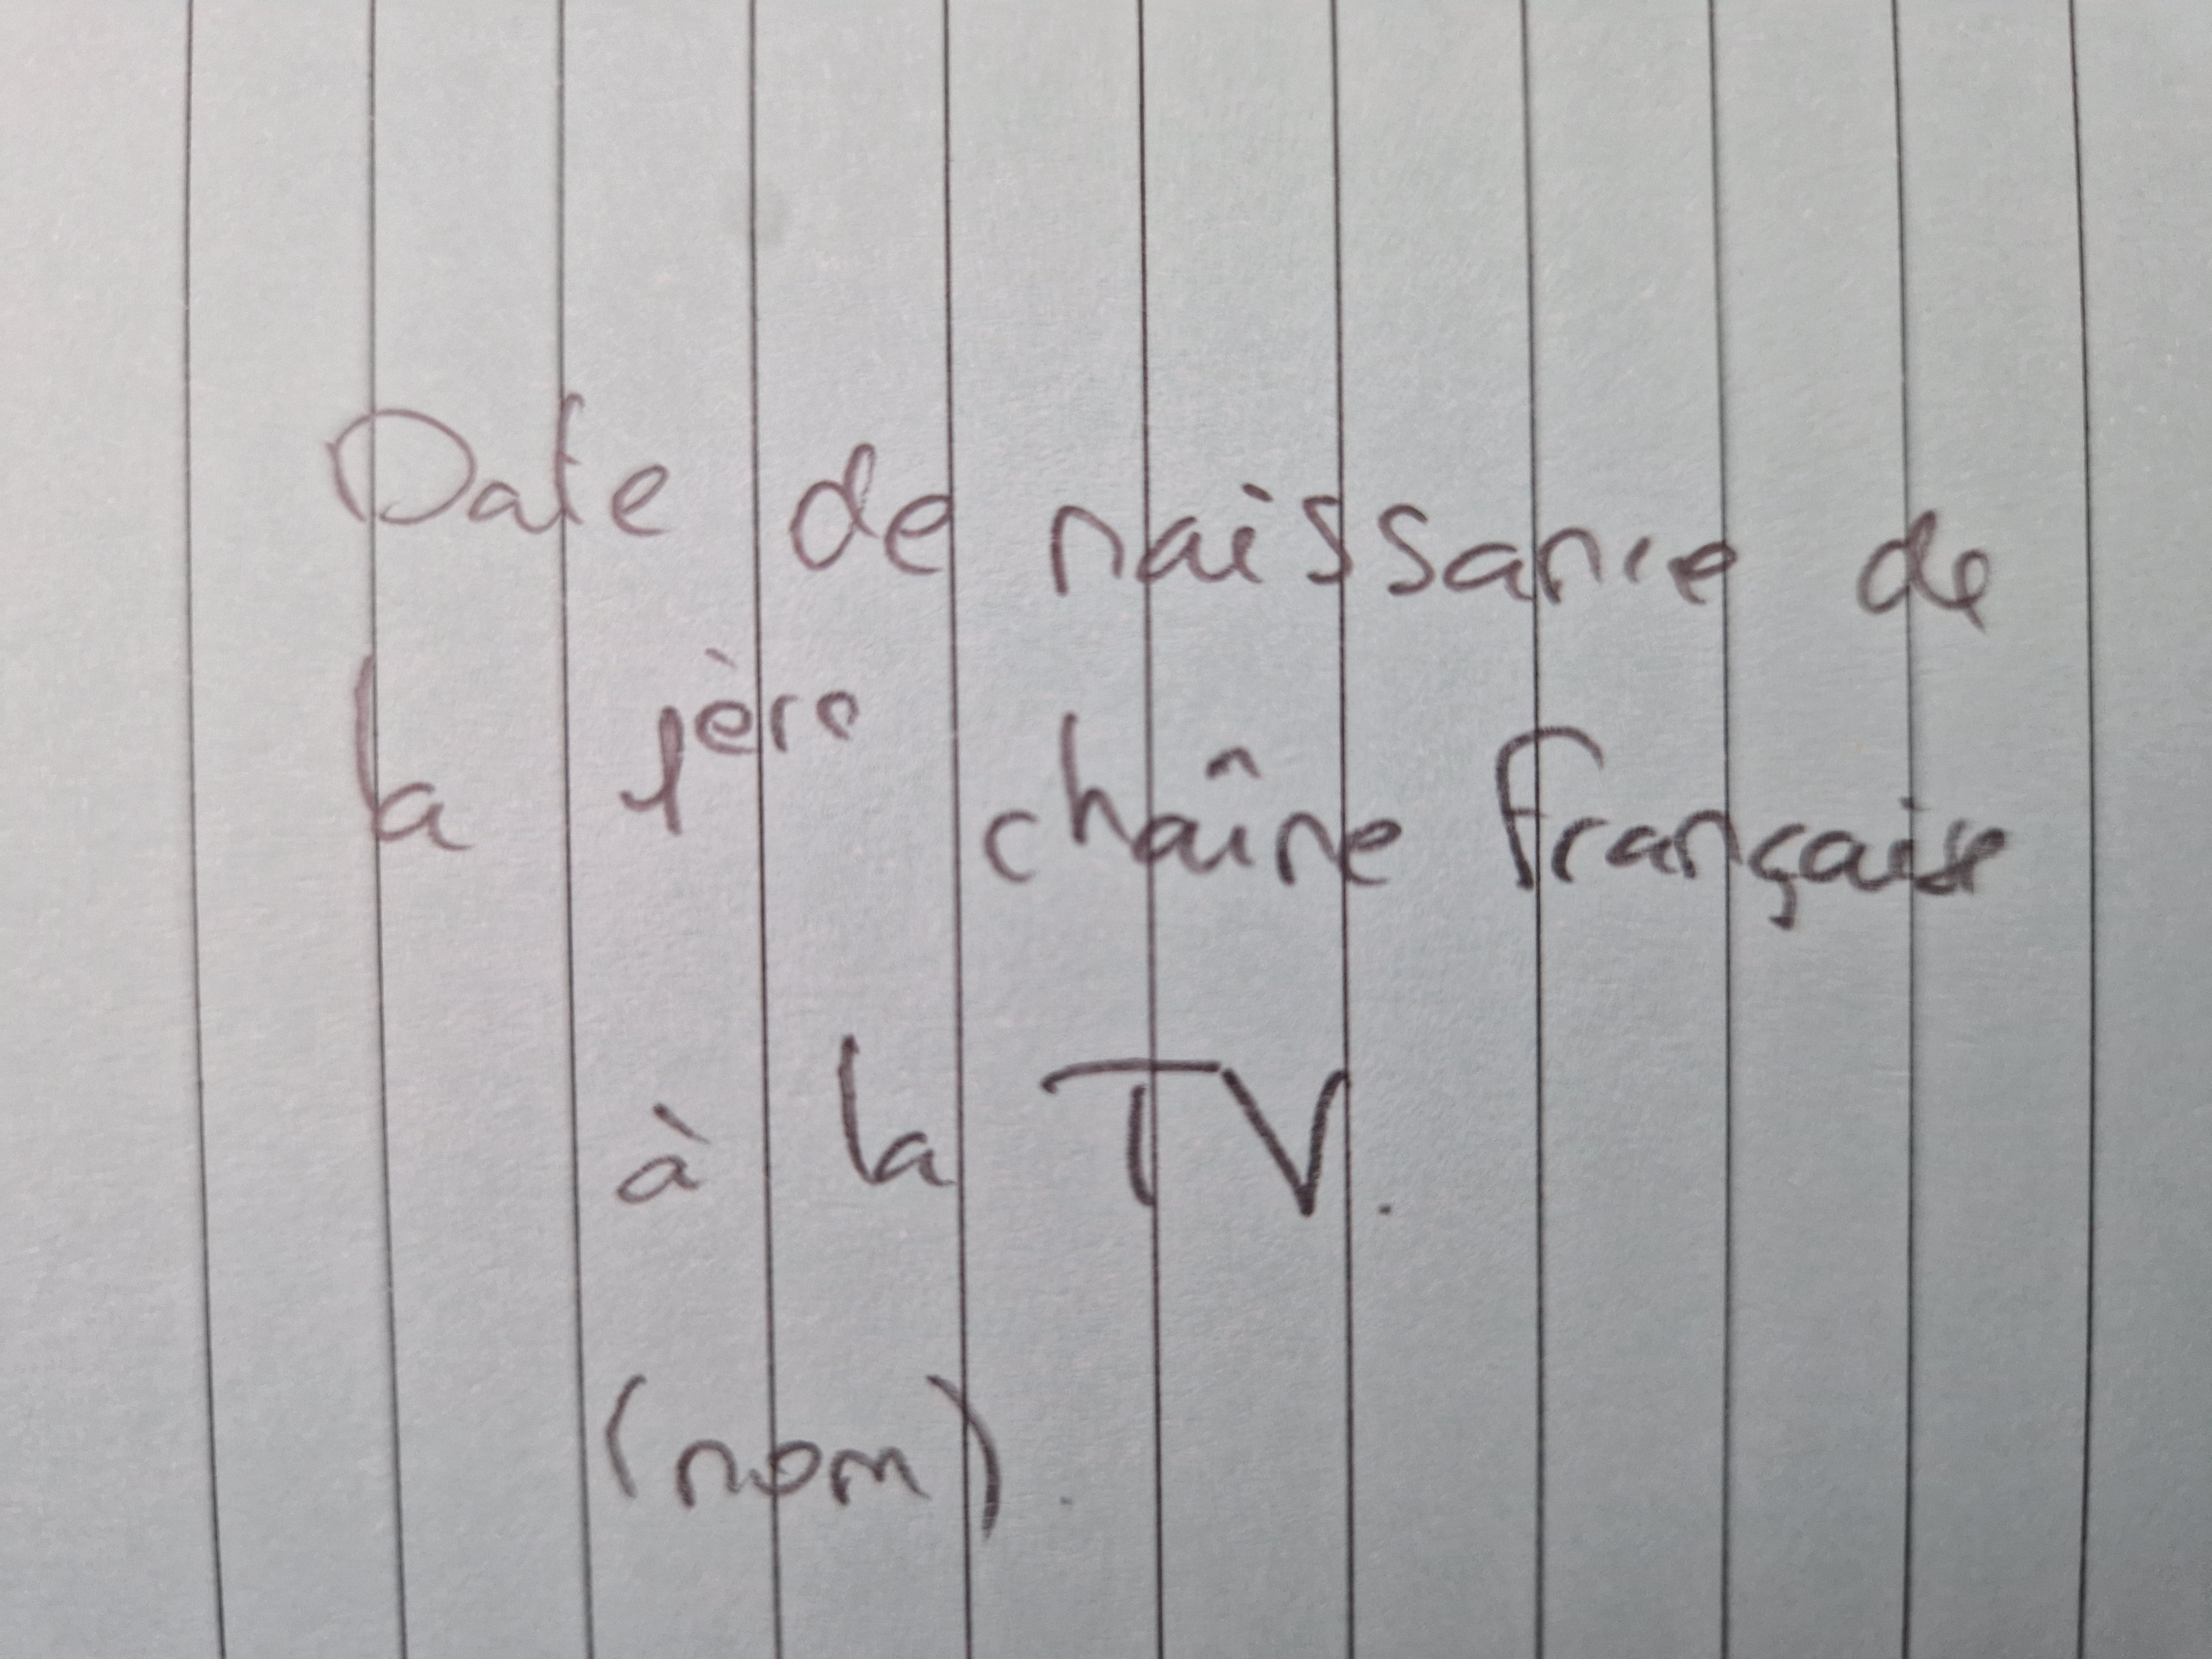 Date de naissance de
la 1ère chaîne française
à la TV.
(nom).